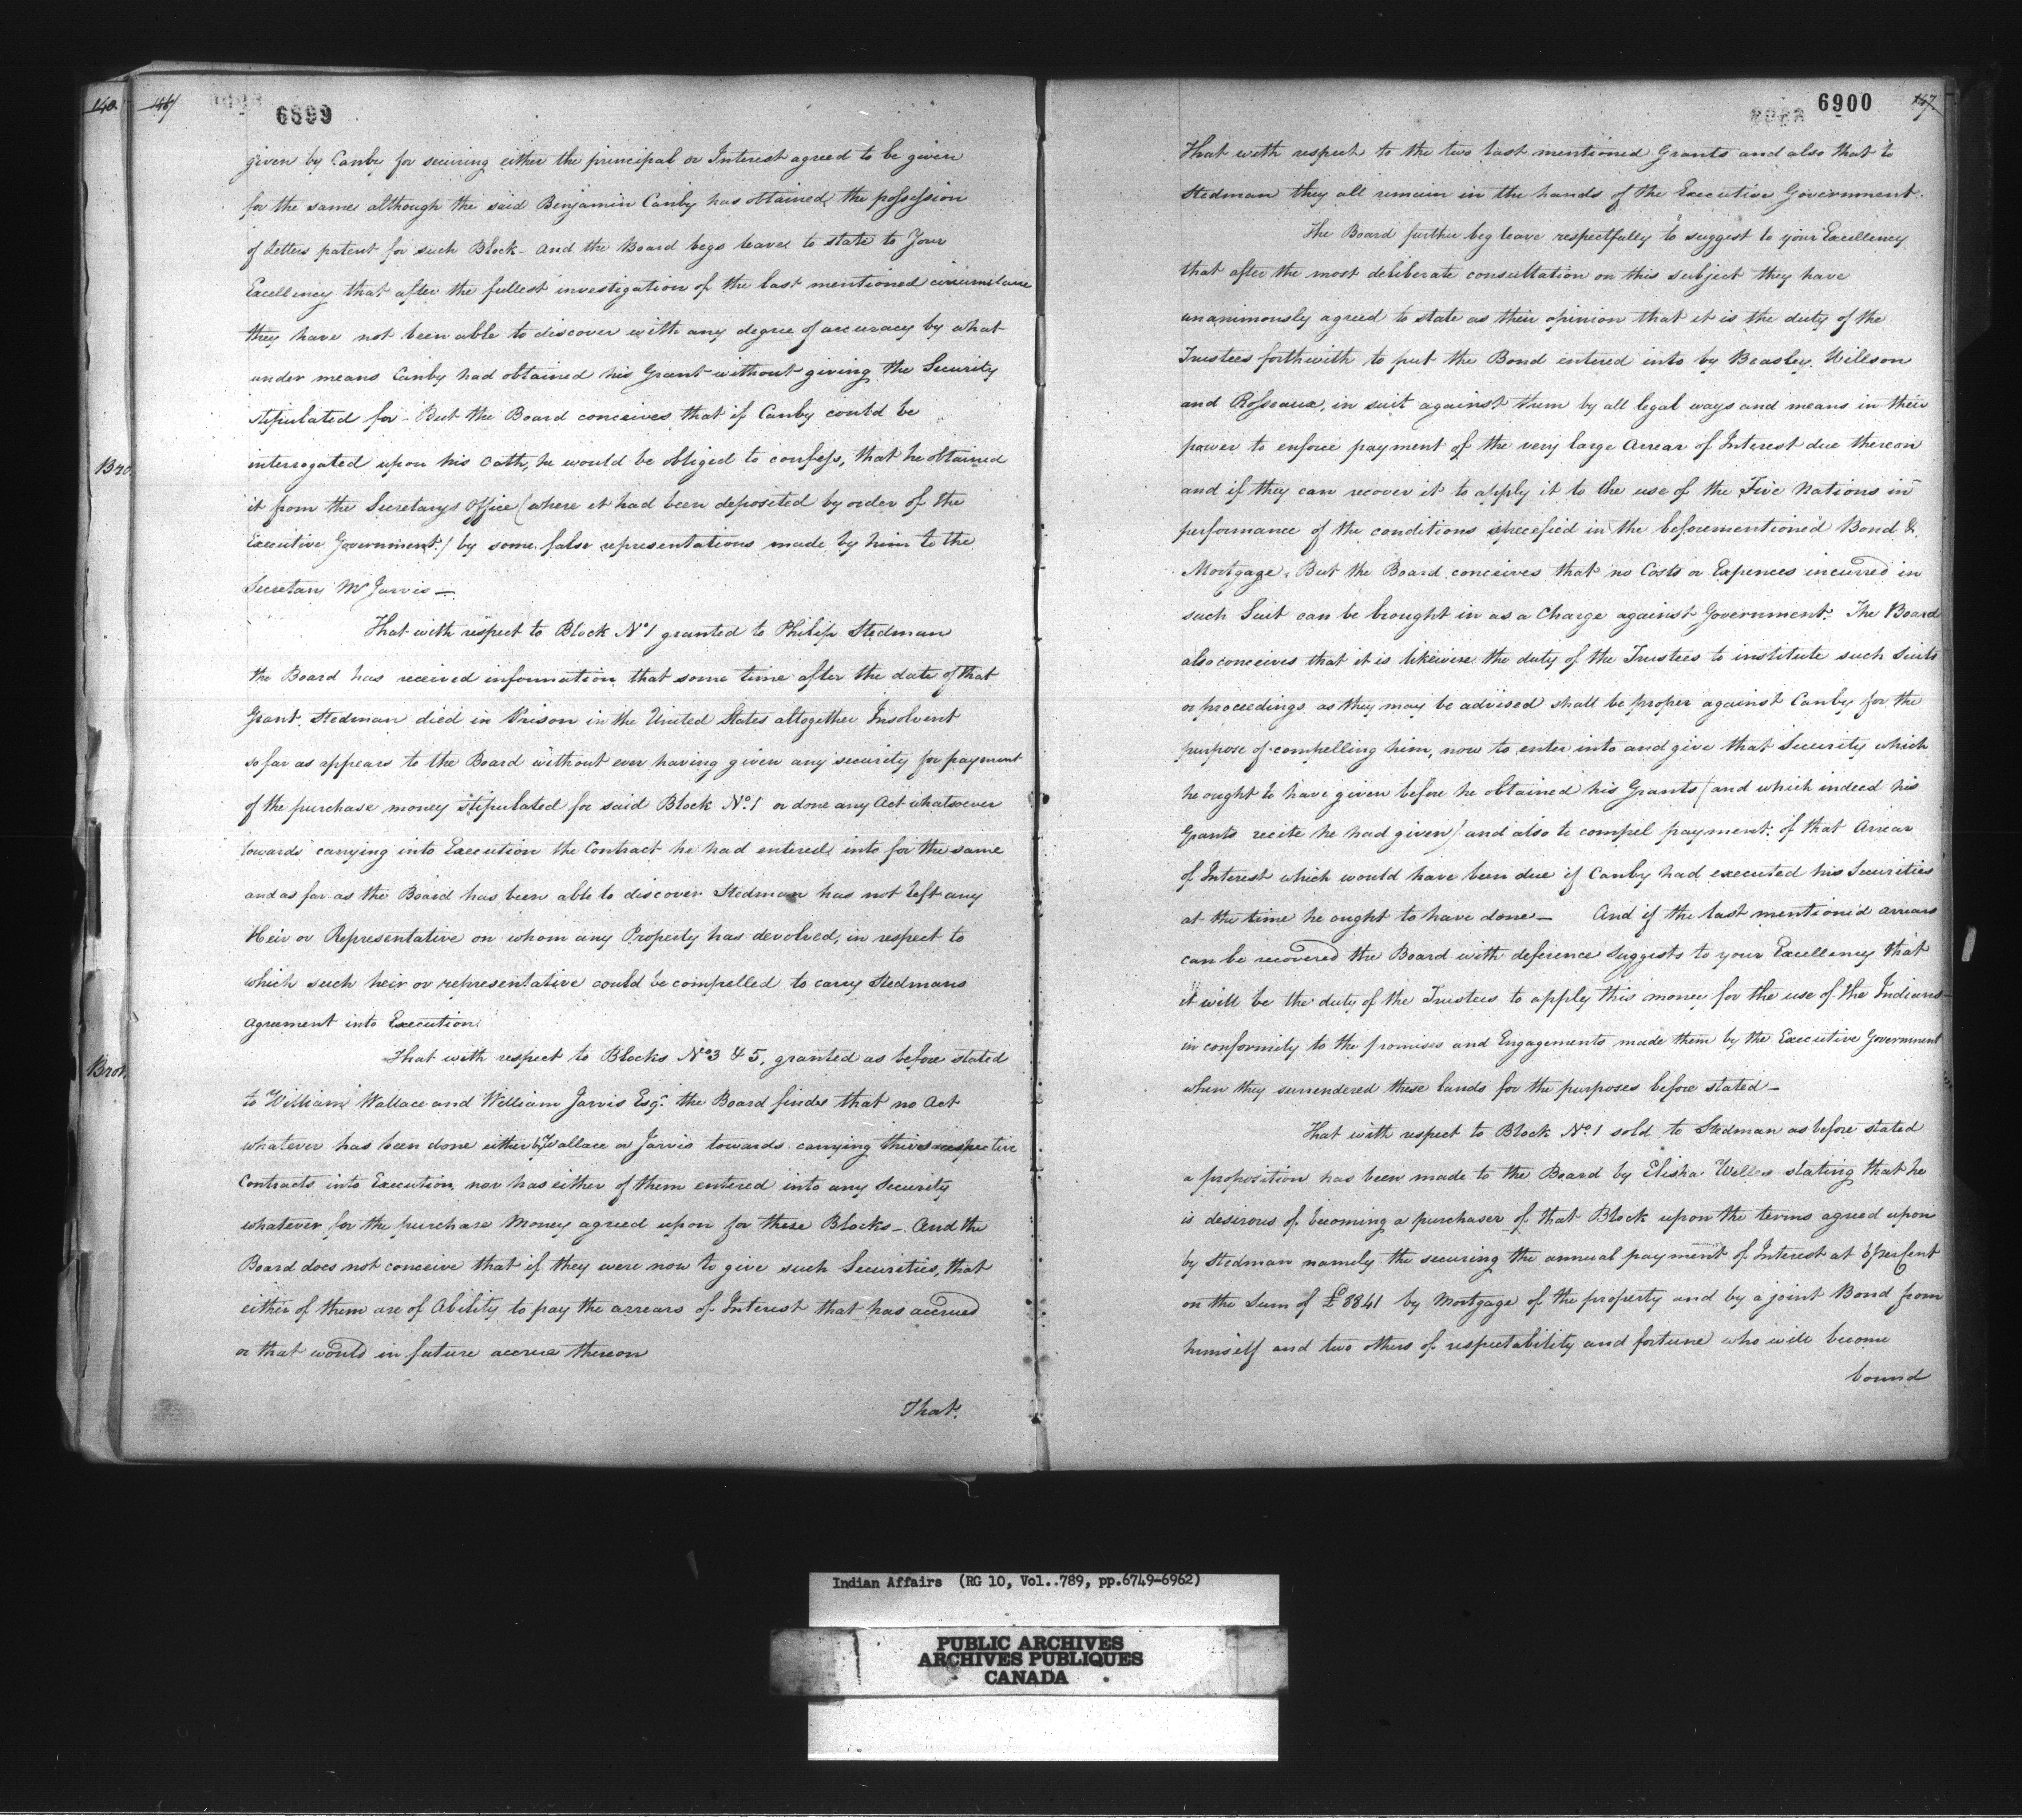 140.
Bro.
Brot.
146
6899
given by Canby for securing either the principal or Interest agreed to be given
for the same although the said Benjamin Canby has obtained the possession
of Letters patent for such Block - and the Board begs leave to state to Your
Excellency that after the fullest investigation of the last mentioned circumstance
they have not been able to discover with any degree of accuracy by what
under means Canby had obtained his Grant without giving the Security
stipulated for - But the Board conceives that if Canby could be
interrogated upon his Oath, he would be obliged to confess, that he obtained
it from the Secretarys Office (where it had been deposited by order of the
Executive Government) by some false representations made by him to the
Secretary Mr Jarvis —
That with respect to Block No 1 granted to Philip Stedman
the Board has received information that some time after the date of that
Grant. Stedman died in Prison in the United States altogether Insolvent
so far as appears to the Board without ever having given any security for payment
of the purchase money stipulated for said Block No. 1 or done any Act whatsoever
towards carrying into Execution the Contract he had entered into for the same
and as far as the Board has been able to discover Stedman has not left any
Heir or Representative on whom any Property has devolved, in respect to
which such heir or representative could be compelled to carry Stedmans
agreement into Execution.
That with respect to Blocks No 3 & 5, granted as before stated
to William Wallace and William Jarvis Esqr. the Board finds that no Act
whatever has been done either by Wallace or Jarvis towards carrying their respective
Contracts into Execution, nor has either of them entered into any Security
whatever for the purchase Money agreed upon for these Blocks - And the
Board does not conceive that if they were now to give such Securities, that
either of them are of Ability to pay the arrears of Interest that has accrued
or that would in future accrue thereon
That.
6900
147
That with respect to the two last mentioned Grants and also that to
Stedman they all remain in the hands of the Executive Government.
The Board further beg leave respectfully to suggest to your Excellency
that after the most deliberate consultation on this subject they have
unanimously agreed to state as their opinion that it is the duty of the
Trustees forthwith to put the Bond entered into by Beasley, Willson
and Rosseaux, in suit against them by all legal ways and means in their
power to enforce payment of the very large Arrear of Interest due thereon
and if they can recover it to apply it to the use of the Five Nations in
performance of the conditions specefied in the beforementioned Bond &
Mortgage. But the Board conceives that no Costs or Expences incurred in
such Suit can be brought in as a Charge against Government. The Board
also conceives that it is likewise the duty of the Trustees to institute such Suits
or proceedings as they may be advised shall be proper against Canby for the
purpose of compelling him, now to enter into and give that Security which
he ought to have given before he obtained his Grants (and which indeed his
Grants recite he had given) and also to compel payment of that Arrear
of Interest which would have been due if Canby had executed his Securities
at the time he ought to have done — And if the last mentioned arrears
can be recovered the Board with deference suggests to your Excellency that
it will be the duty of the Trustees to apply this money for the use of the Indians
in conformity to the promises and Engagements made them by the Executive Government
when they surrendered these lands for the purposes before stated —
That with respect to Block No. 1 sold to Stedman as before stated
a proposition has been made to the Board by Elisha Welles stating that he
is desirous of becoming a purchaser of that Block upon the terms agreed upon
by Stedman namely the securing the annual payment of Interest at 6 per Cent
on the Sum of £8841 by Mortgage of the property and by a joint Bond from
himself and two others of respectability and fortune who will become
bound
Indian Affairs (RG 10, Vol..789, pp.6749-6962)
PUBLIC ARCHIVES
ARCHIVES PUBLIQUES
CANADA